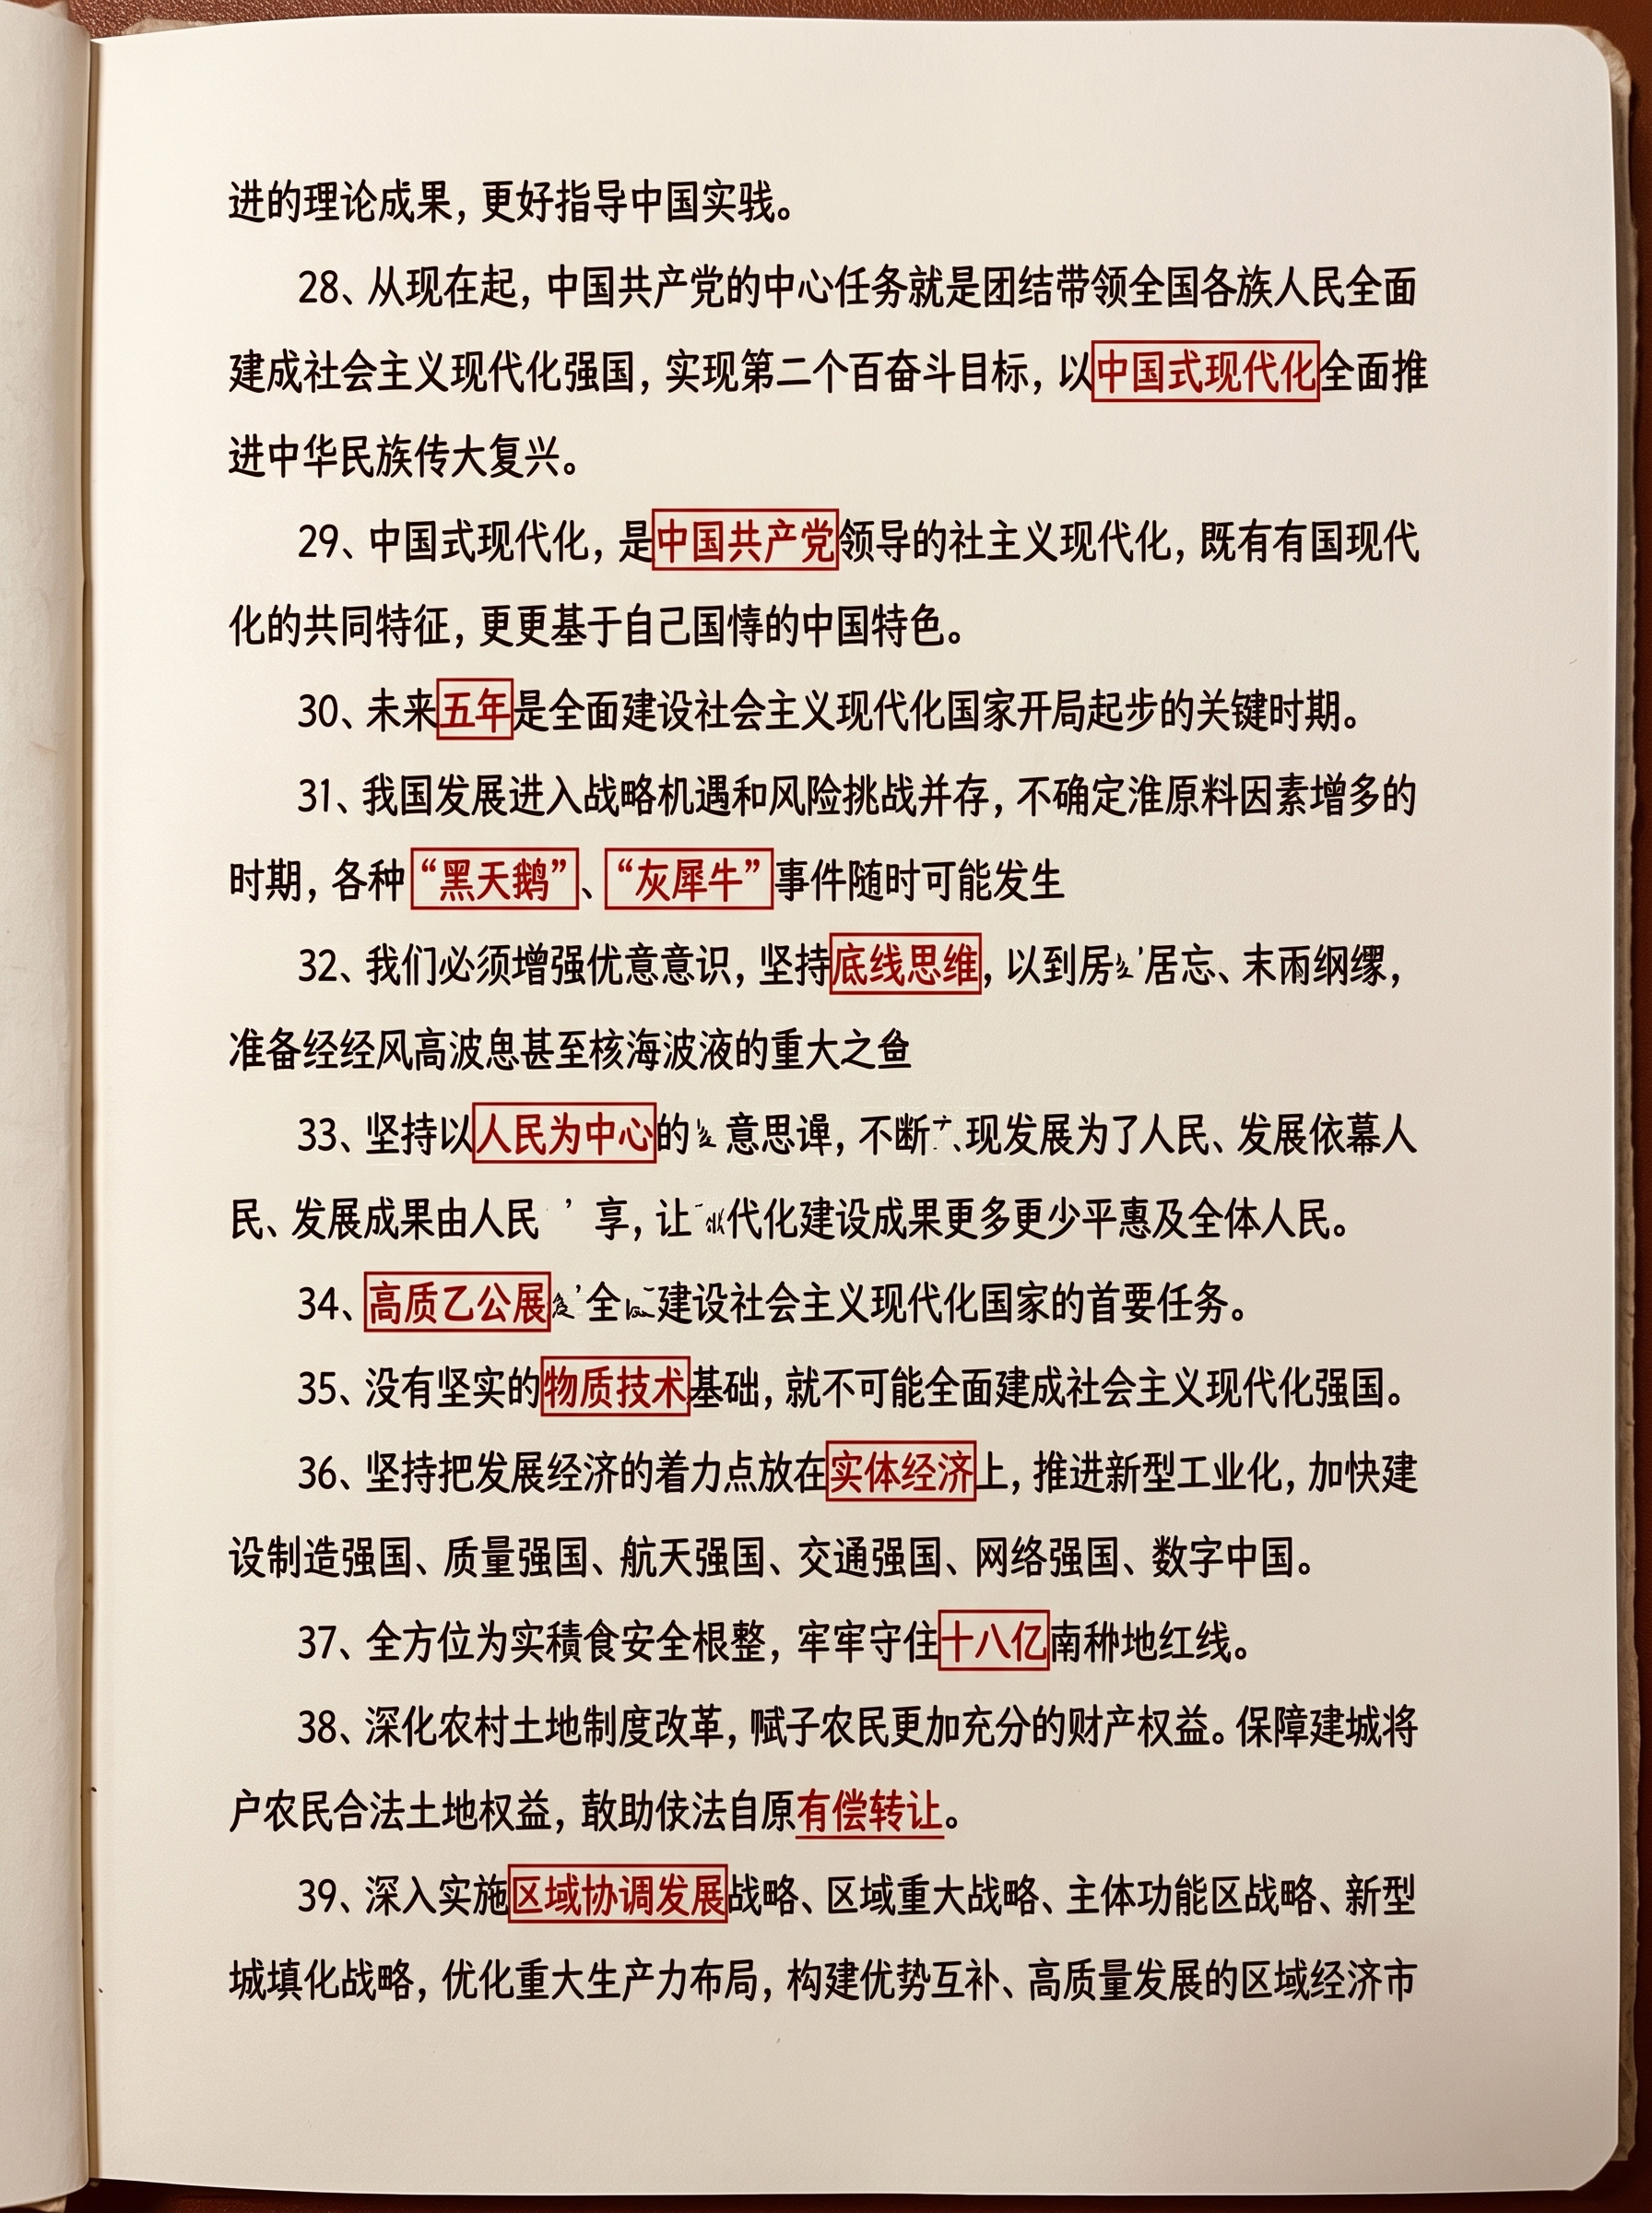 进的理论成果，更好指导中国实践。
28、从现在起，中国共产党的中心任务就是团结带领全国各族人民全面
建成社会主义现代化强国，实现第二个百奋斗目标，以中国式现代化全面推
进中华民族传大复兴。
29、中国式现代化，是中国共产党领导的社主义现代化，既有有国现代
化的共同特征，更更基于自己国的中国特色。
30、未来五年是全面建设社会主义现代化国家开局起步的关键时期。
31、我国发展进入战略机遇和风险挑战并存，不确定淮原料因素增多的
时期，各种“黑天鹅”、“灰犀牛”事件随时可能发生
32、我们必须增强优意意识，坚持底线思维，以到居忘、末雨纲缪，
准备经经风高波甚至核海波液的重大之
33、坚持以人民为中心的意思，不断现发展为了人民、发展依幕人
民、发展成果由人民享，让代化建设成果更多更少平惠及全体人民。
34、高质乙公展全建设社会主义现代化国家的首要任务。
35、没有坚实的物质技术基础，就不可能全面建成社会主义现代化强国。
36、坚持把发展经济的着力点放在实体经济上，推进新型工业化，加快建
设制造强国、质量强国、航天强国、交通强国、网络强国、数字中国。
37、全方位为实食安全根整，牢牢守住十八亿南种地红线。
38、深化农村土地制度改革，赋子农民更加充分的财产权益。保障建城将
户农民合法土地权益，敢助依法自原有偿转让。
39、深入实施区域协调发展战略、区域重大战略、主体功能区战略、新型
城填化战略，优化重大生产力布局，构建优势互补、高质量发展的区域经济市